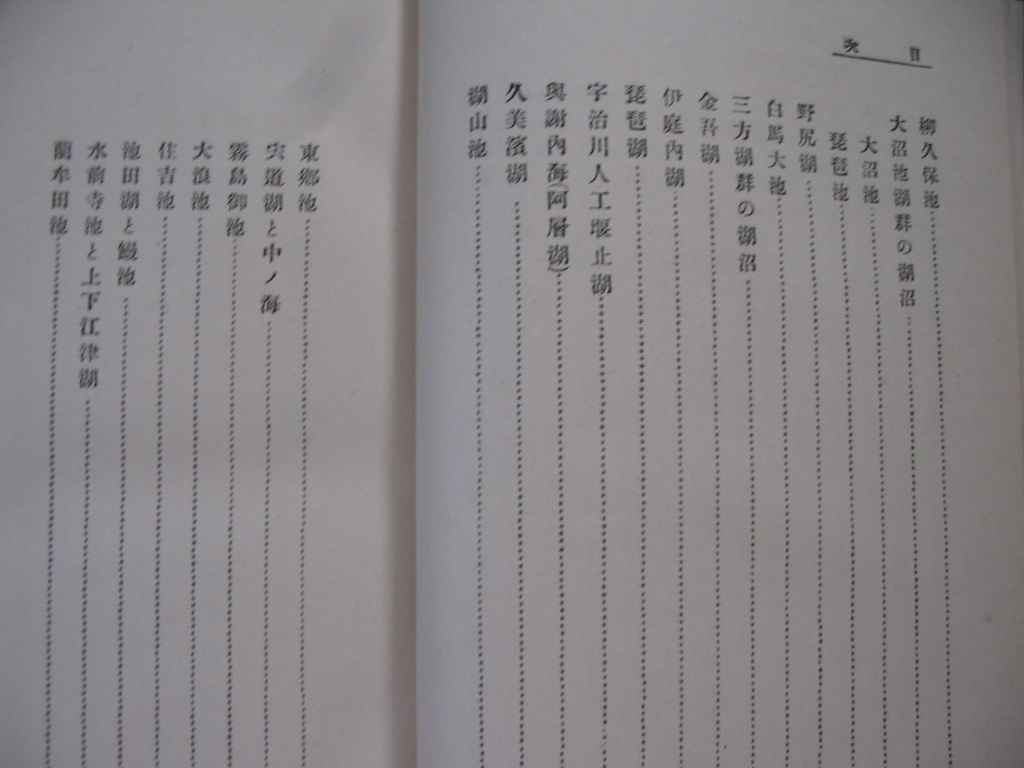 目次
柳久保池
大沼池湖群の湖沼
大沼池
琵琶池
野尻湖
白馬大池
三方湖群の湖沼
金吾湖
伊庭內湖
琵琶湖
宇治川人工堰止湖
與謝內海(阿層湖)
久美濱湖
湖山池
東鄕池
宍道湖と中ノ海
霧島御池
大浪池
住吉池
池田湖と鰻池
水前寺池と上下江津湖
藺牟田池